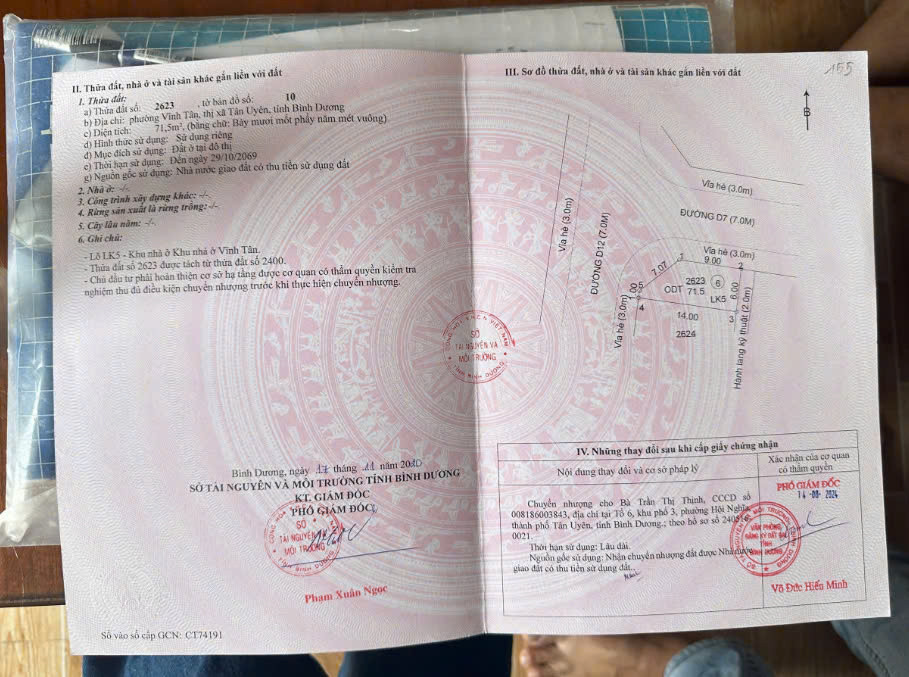 II. Thửa đất, nhà ở và tài sản khác gắn liền với đất
1. Thửa đất:
a) Thửa đất số: 2623 , tờ bản đồ số: 10
b) Địa chỉ: phường Vĩnh Tân, thị xã Tân Uyên, tỉnh Bình Dương
c) Diện tích: 71,5m², (bằng chữ: Bảy mươi mốt phẩy năm mét vuông)
d) Hình thức sử dụng: Sử dụng riêng
đ) Mục đích sử dụng: Đất ở tại đô thị
e) Thời hạn sử dụng: Đến ngày 29/10/2069
g) Nguồn gốc sử dụng: Nhà nước giao đất có thu tiền sử dụng đất
2. Nhà ở: -/-.
3. Công trình xây dựng khác: -/-.
4. Rừng sản xuất là rừng trồng: -/-.
5. Cây lâu năm: -/-.
6. Ghi chú:
- Lô LK5 - Khu nhà ở Khu nhà ở Vĩnh Tân.
- Thửa đất số 2623 được tách từ thửa đất số 2400.
- Chủ đầu tư phải hoàn thiện cơ sở hạ tầng được cơ quan có thẩm quyền kiểm tra
nghiệm thu đủ điều kiện chuyển nhượng trước khi thực hiện chuyển nhượng.
Bình Dương, ngày 17 tháng 11 năm 2020
SỞ TÀI NGUYÊN VÀ MÔI TRƯỜNG TỈNH BÌNH DƯƠNG
KT. GIÁM ĐỐC
PHÓ GIÁM ĐỐC
SỞ
TÀI NGUYÊN VÀ
MÔI TRƯỜNG
Phạm Xuân Ngọc
Số vào sổ cấp GCN: CT74191
III. Sơ đồ thửa đất, nhà ở và tài sản khác gắn liền với đất
155
B
Vỉa hè (3.0m)
ĐƯỜNG D7 (7.0M)
Vỉa hè (3.0m)
ĐƯỜNG D12 (7.0M)
Vỉa hè (3.0m)
9.00
1
2
7.07
2623
6
ODT
71.5
LK5
6.00
5
1.00
4
3
14.00
2624
Vỉa hè (3.0m)
Hành lang kỹ thuật (2.0m)
SỞ
TÀI NGUYÊN VÀ
MÔI TRƯỜNG
TỈNH BÌNH DƯƠNG
IV. Những thay đổi sau khi cấp giấy chứng nhận
Nội dung thay đổi và cơ sở pháp lý
Xác nhận của cơ quan
có thẩm quyền
Chuyển nhượng cho Bà Trần Thị Thịnh, CCCD số
008186003843, địa chỉ tại Tổ 6, khu phố 3, phường Hội Nghĩa,
thành phố Tân Uyên, tỉnh Bình Dương.; theo hồ sơ số
0021.
Thời hạn sử dụng: Lâu dài.
Nguồn gốc sử dụng: Nhận chuyển nhượng đất được Nhà nước
giao đất có thu tiền sử dụng đất.
PHÓ GIÁM ĐỐC
14 -08- 2024
VĂN PHÒNG
ĐĂNG KÝ ĐẤT ĐAI
TỈNH
BÌNH DƯƠNG
Võ Đức Hiếu Minh